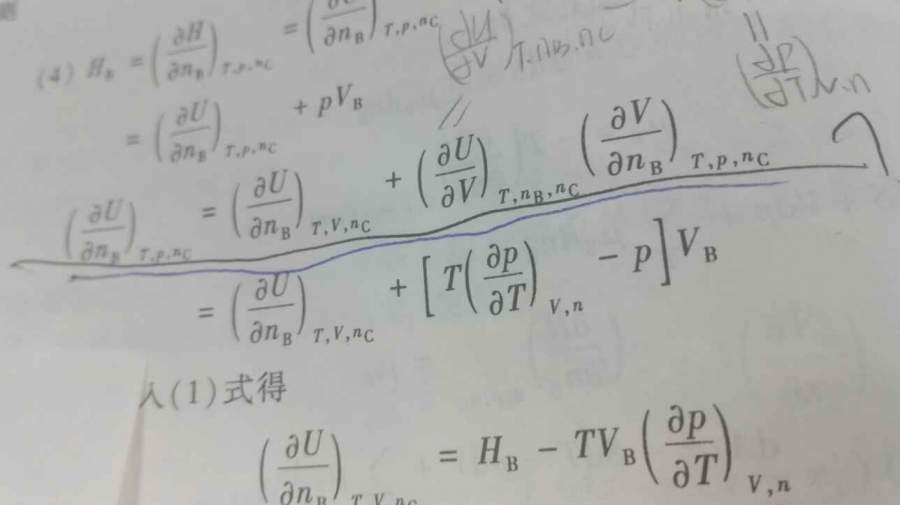 (4) H_B = (∂H/∂n_B)_{T,p,n_C} = (∂U/∂n_B)_{T,p,n_C}
(∂U/∂V)_{T,n_B,n_C}
= (∂U/∂n_B)_{T,p,n_C} + pV_B
= (∂p/∂T)_{V,n}
(∂U/∂n_B)_{T,p,n_C} = (∂U/∂n_B)_{T,V,n_C} + (∂U/∂V)_{T,n_B,n_C} (∂V/∂n_B)_{T,p,n_C} ?
= (∂U/∂n_B)_{T,V,n_C} + [T(∂p/∂T)_{V,n} - p]V_B
入(1)式得
(∂U/∂n_B)_{T,V,n_C} = H_B - TV_B(∂p/∂T)_{V,n}